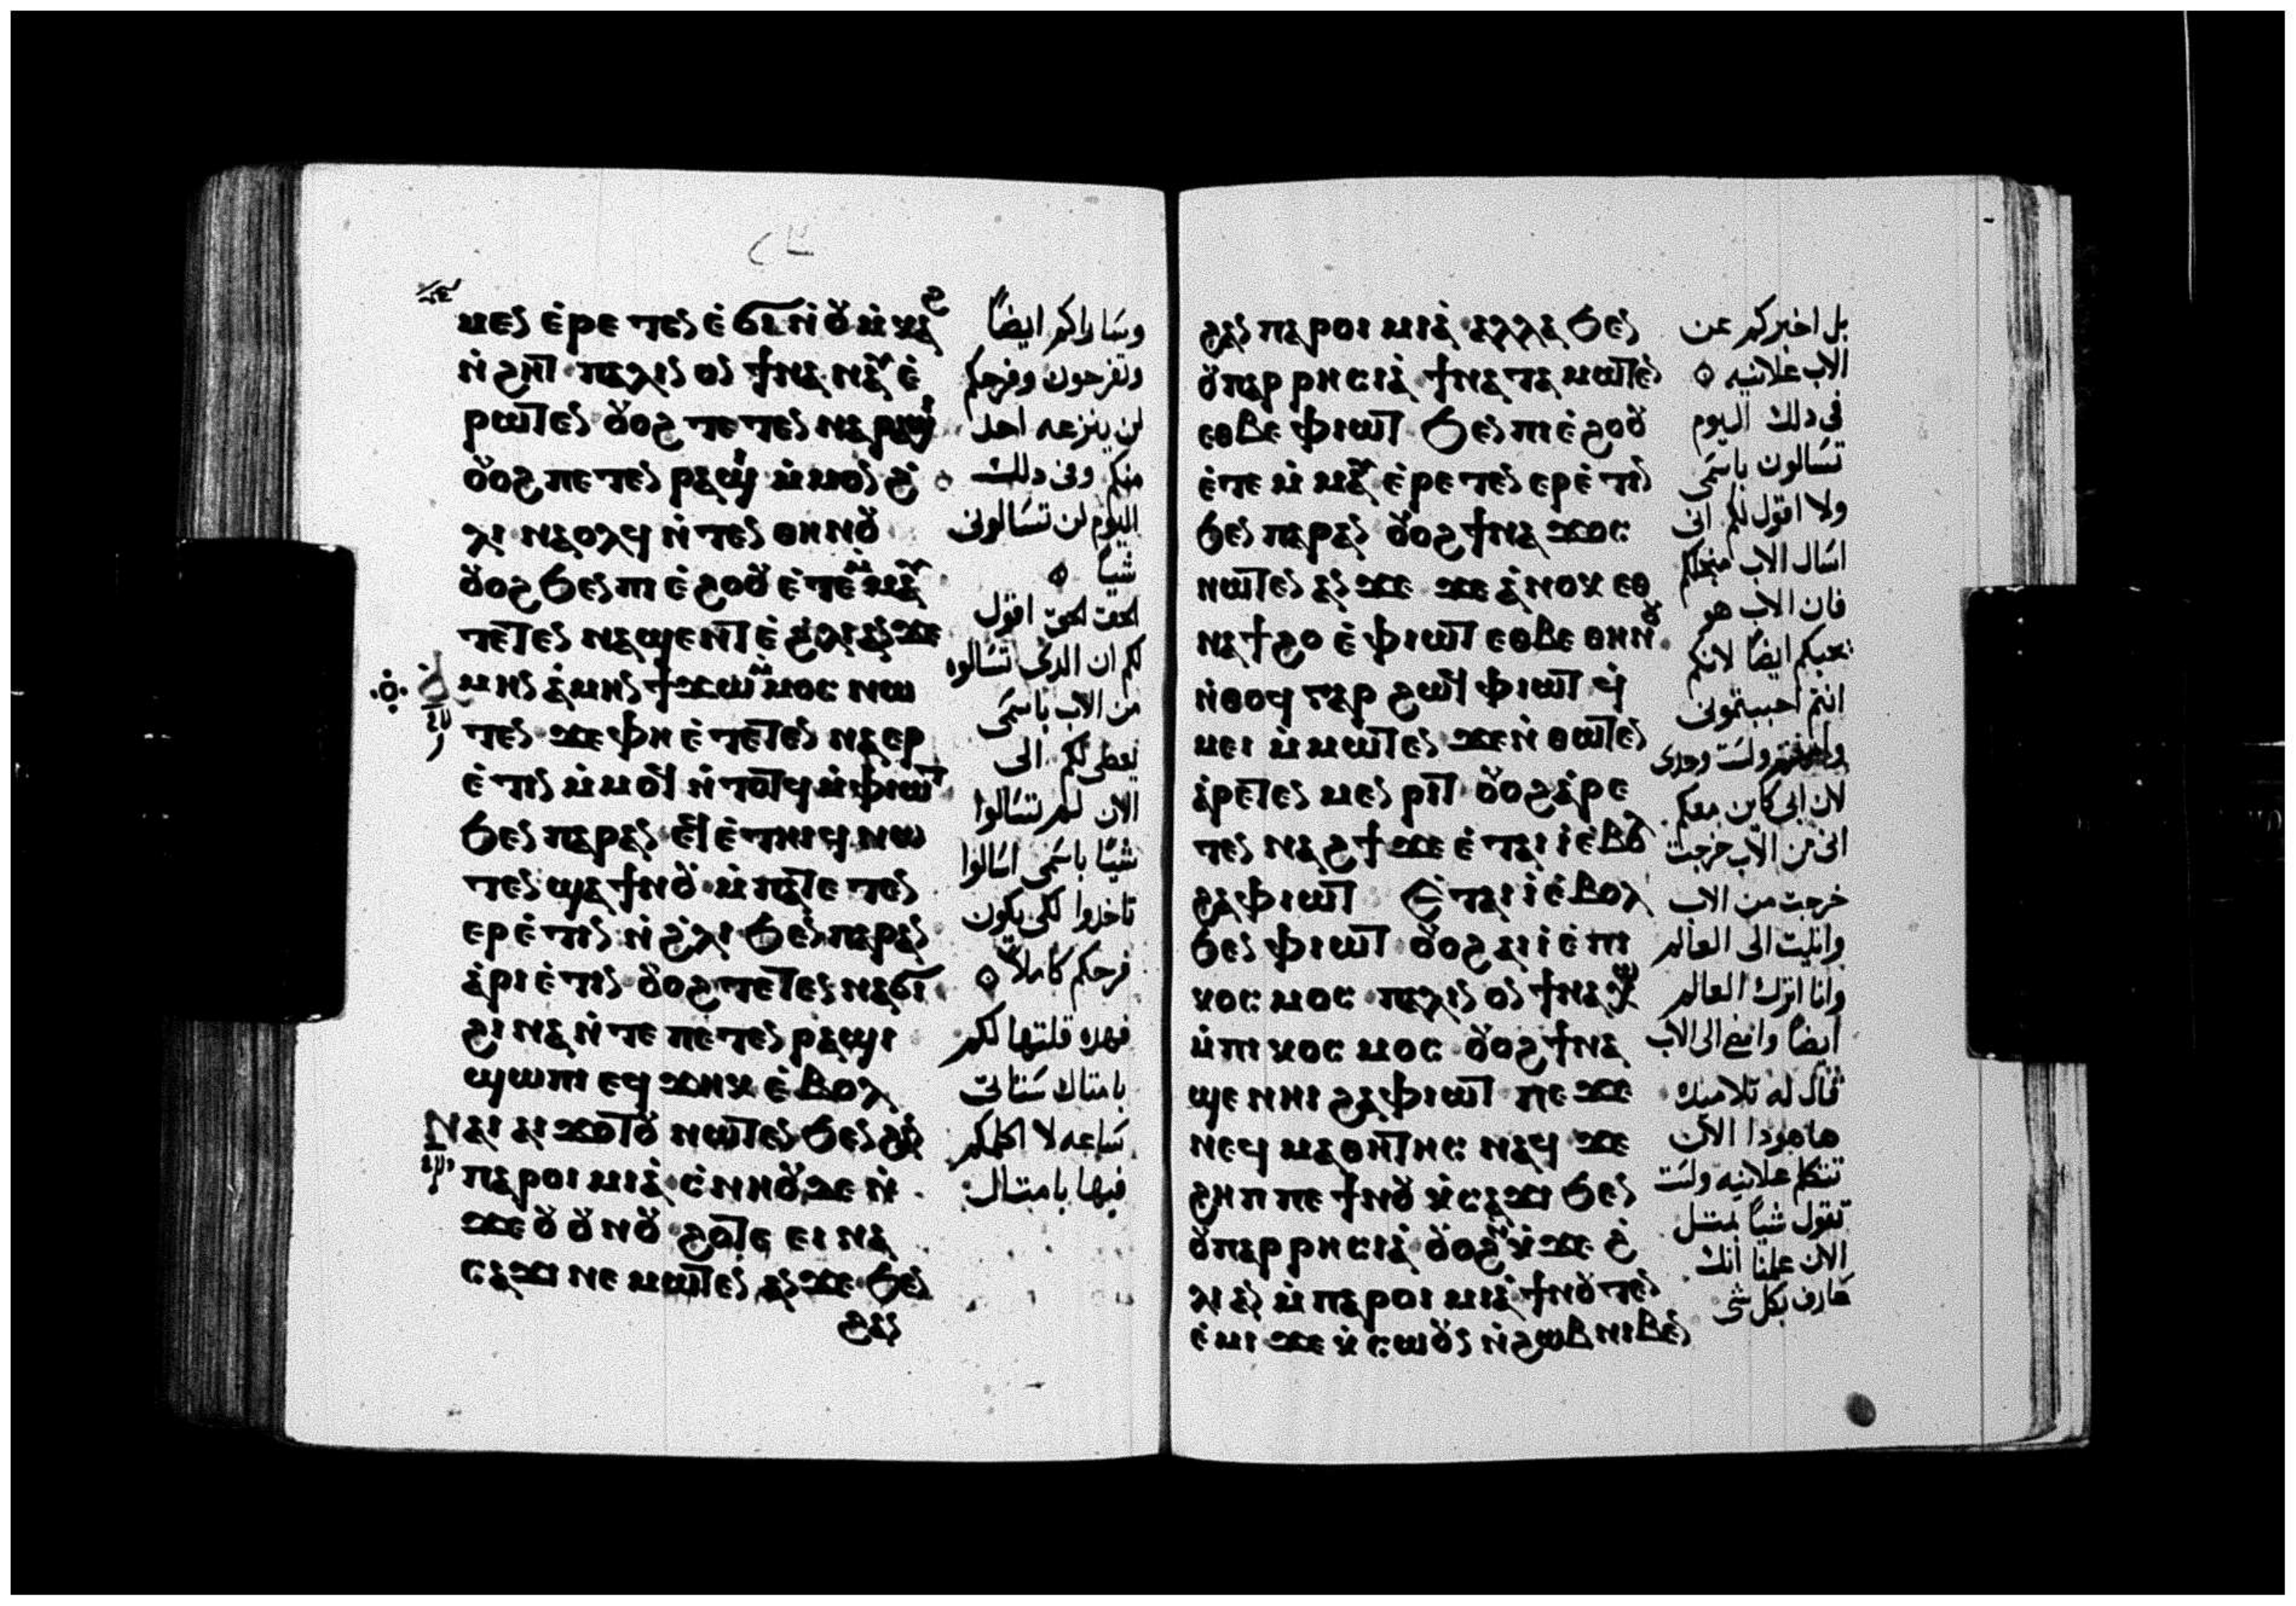 ⲙⲉⲛ ⲉ̀ⲣⲉⲧⲉⲛ ⲉ̀ϭⲓ ⲛ̀ⲟⲩⲙ̀ⲕⲁϩ
ⲛ̀ϩⲏⲧ ⲡⲁⲗⲓⲛ ⲟⲛ ϯⲛⲁⲛⲁⲩ ⲉ̀
ⲣⲱⲧⲉⲛ ⲟⲩⲟϩ ⲧⲉⲧⲉⲛⲛⲁⲣⲁϣⲓ
ⲟⲩⲟϩ ⲡⲉⲧⲉⲛⲣⲁϣⲓ ⲙ̀ⲙⲟⲛ ϩ̀
ⲗⲓ ⲛⲁⲟⲗϥ ⲛ̀ⲧⲉⲛ ⲑⲏⲛⲟⲩ
ⲟⲩⲟϩ ϧⲉⲛ ⲡⲓⲉ̀ϩⲟⲟⲩ ⲉ̀ⲧⲉⲙ̀ⲙⲁⲩ
ⲧⲉⲧⲉⲛⲛⲁϣⲉⲛⲧ ⲉ̀ϩ̀ⲗⲓ ⲁⲛ ϫⲉ
ⲁ̀ⲙⲏⲛ ⲁ̀ⲙⲏⲛ ϯϫⲱⲙ̀ⲙⲟⲥ ⲛⲱ
ⲧⲉⲛ ϫⲉ ⲫⲏ ⲉ̀ⲧⲉⲧⲉⲛⲛⲁⲉⲣ
ⲉ̀ⲧⲓⲛ ⲙ̀ⲙⲟϥ ⲛ̀ⲧⲟⲧϥ ⲙ̀ⲫⲓⲱⲧ
ϧⲉⲛ ⲡⲁⲣⲁⲛ ⲉϥⲉ̀ⲧⲏⲓϥ ⲛⲱ
ⲧⲉⲛ ϣⲁ ϯⲛⲟⲩ ⲙ̀ⲡⲁⲧⲉⲧⲉⲛ
ⲉⲣⲉ̀ⲧⲓⲛ ⲛ̀ϩ̀ⲗⲓ ϧⲉⲛ ⲡⲁⲣⲁⲛ
ⲁ̀ⲣⲓⲉ̀ⲧⲓⲛ ⲟⲩⲟϩ ⲧⲉⲧⲉⲛⲛⲁϭⲓ
ϩⲓⲛⲁ ⲛ̀ⲧⲉ ⲡⲉⲧⲉⲛⲣⲁϣⲓ
ϣⲱⲡⲓ ⲉϥϫⲏⲕ ⲉ̀ⲃⲟⲗ
ⲛⲁⲓ ⲁⲓϫⲟⲧⲟⲩ ⲛⲱⲧⲉⲛ ϧⲉⲛ ϩⲁⲛ
ⲡⲁⲣⲟⲓⲙⲓⲁ̀ ⲥ̀ⲛⲏⲟⲩ ϫⲉ ⲛ̀
ϫⲉ ⲟⲩⲟⲩⲛⲟⲩ ϩⲟⲧⲉ ⲉⲓⲛⲁ
ⲥⲁϫⲓ ⲛⲉⲙⲱⲧⲉⲛ ⲁⲛ ϫⲉ ϧⲉⲛ
ϩⲁⲛ
وساراكم ايضاً
وتفرحون وفرحكم
لن ينزعه احد
منكم وفى دلك
اليوم لن تسالونى
شياً
الحق الحق اقول
لكم ان الدى تسالوه
من الاب باسمى
يعطى لكم الى
الان لم تسالوا
شيئا باسمى اسالوا
تاخدوا لكى يكون
فرحكم كاملاً
فهده قلتها لكم
بامتال ستاتى
ساعه لا اكلمكم
فيها بامتال
ϩⲁⲛ ⲡⲁⲣⲟⲓⲙⲓⲁ̀ ⲁⲗⲗⲁ ϧⲉⲛ
ⲟⲩⲡⲁⲣⲣⲏⲥⲓⲁ̀ ϯⲛⲁⲧⲁⲙⲱⲧⲉⲛ
ⲉⲑⲃⲉ ⲫⲓⲱⲧ ϧⲉⲛ ⲡⲓⲉ̀ϩⲟⲟⲩ
ⲉ̀ⲧⲉⲙ̀ⲙⲁⲩ ⲉ̀ⲣⲉⲧⲉⲛⲉⲣⲉ̀ⲧⲓⲛ
ϧⲉⲛ ⲡⲁⲣⲁⲛ ⲟⲩⲟϩ ϯⲛⲁϫⲟⲥ
ⲛⲱⲧⲉⲛ ⲁⲛ ϫⲉ ϫⲉ ⲁ̀ⲛⲟⲕ ⲉⲑ
ⲛⲁϯϩⲟ ⲉ̀ⲫⲓⲱⲧ ⲉⲑⲃⲉ ⲑⲏⲛⲟⲩ
ⲛ̀ⲑⲟϥ ⲅⲁⲣ ϩⲱϥ ⲫⲓⲱⲧ ϥ̀
ⲙⲉⲓ ⲙ̀ⲙⲱⲧⲉⲛ ϫⲉ ⲛ̀ⲑⲱⲧⲉⲛ
ⲁ̀ⲣⲉⲧⲉⲛⲙⲉⲛⲣⲓⲧ ⲟⲩⲟϩ ⲁ̀ⲣⲉ
ⲧⲉⲛⲛⲁϩϯ ϫⲉ ⲉ̀ⲧⲁⲓⲓ̀ ⲉ̀ⲃⲟⲗ
ϩⲁ ⲫⲓⲱⲧ ⲉ̀ⲧⲁⲓⲓ̀ ⲉ̀ⲃⲟⲗ
ϧⲉⲛ ⲫⲓⲱⲧ ⲟⲩⲟϩ ⲁⲓⲓ̀ ⲉ̀ⲡⲓ
ⲕⲟⲥⲙⲟⲥ ⲡⲁⲗⲓⲛ ⲟⲛ ϯⲛⲁⲭⲱ
ⲙ̀ⲡⲓⲕⲟⲥⲙⲟⲥ ⲟⲩⲟϩ ϯⲛⲁ
ϣⲉ ⲛⲏⲓ ϩⲁ ⲫⲓⲱⲧ ⲡⲉϫⲉ
ⲛⲉϥⲙⲁⲑⲏⲧⲏⲥ ⲛⲁϥ ϫⲉ
ϩⲏⲡⲡⲉ ϯⲛⲟⲩ ⲕ̀ⲥⲁϫⲓ ϧⲉⲛ
ⲟⲩⲡⲁⲣⲣⲏⲥⲓⲁ̀ ⲟⲩⲟϩ ⲕ̀ϫⲉ ϩ̀
ⲗⲓ ⲁⲛ ⲙ̀ⲡⲁⲣⲟⲓⲙⲓⲁ̀ ϯⲛⲟⲩ ⲧⲉⲛ
ⲉ̀ⲙⲓ ϫⲉ ⲕ̀ⲥⲱⲟⲩⲛ ⲛ̀ϩⲱⲃ ⲛⲓⲃⲉⲛ
بل اخبركم عن
الاب علانيه
فى دلك اليوم
تسالون باسمى
ولا اقول لكم انى
اسال الاب
فان الاب هو
يحبكم ايضاً لانكم
انتم احببتمونى
ولست وحدى
لان ابى كاين معكم
انى من الاب خرجت
خرجت من الاب
واتيت الى العالم
وانا اترك العالم
ايضاً وامضى الى الاب
قال له تلاميده
هاهودا الان
تتكلم علانيه ولست
تقول شياً بمتل
الان علمنا انك
عارف بكل شى